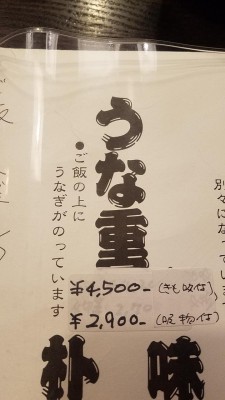 別々になっています
うな重
●ご飯の上に
うなぎがのっています
¥4,500- (きも吸付)
¥2,900- (吸物付)
味